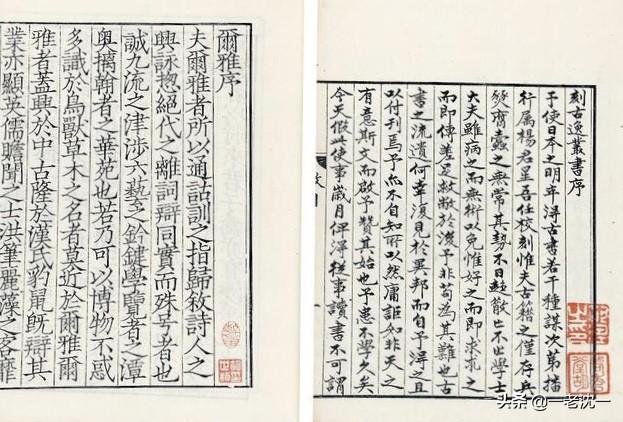 刻古逸叢書序
予使日本之明年得古書若干種謀次第播
行屬楊君星吾任校刻惟夫古籍之僅存兵
燹蠹之無常其勢不日趍散亡不止學士
大夫雖病之而無術以免惟好之而即求求之
而即傳差足救敝於後予非苟為其難也古
書之流遺何幸復見於異邦而自予得之且
以付刊焉予亦不自知所以然庸詎知非天之
有意斯文而啟予贊其始也予患不學久矣
今天假此使事歲月俾得從事讀書不可謂
爾雅序
夫爾雅者所以通詁訓之指歸敘詩人之
興詠揔絕代之離詞辯同實而殊号者也
誠九流之津涉六藝之鈐鍵學覽者之潭
奧摛翰者之華苑也若乃可以博物不惑
多識於鳥獸草木之名者莫近於爾雅爾
雅者蓋興於中古隆於漢氏豹鼠既辯其
業亦顯英儒贍聞之士洪筆麗藻之客靡
头条 @一老沈一